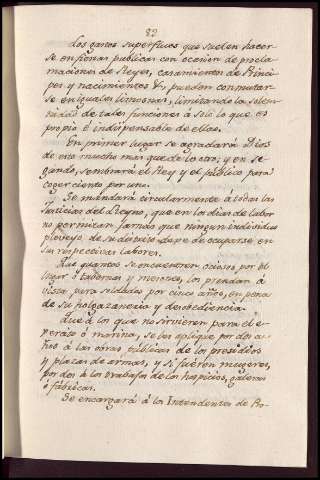 82
Los gastos superfluos que suelen hacer-
se en fiestas publicas con ocasion de procla-
maciones de Reyes, casamientos de Princi-
pes y nacimientos &c, pueden conmutar-
se en iguales limosnas, limitando la solem-
nidad de tales funciones á solo lo que es
propio é indispensable de ellas.
En primer lugar se agradará Dios
de esto mucho mas que de lo otro; y en se-
gundo, sembrará el Rey y el público para
coger ciento por uno.
Se mandará circularmente á todas las
Justicias del Reyno, que en los dias de labor
no permitan jamas que ningun individuo
plebeyo de su distrito dexe de ocuparse en
sus respectivas labores.
Que quantos se encuentren ociosos por el
lugar ó tabernas y mesones, los prendan á
vista para soldados por cinco años, en pena
de su holgazanería y desobediencia.
Que á los que no sirvieren para el e-
xercito ó marina, se les aplique por dos a-
ños á las obras públicas de los presidios
y plazas de armas, y si fueren mugeres,
por dos á los trabajos de los hospicios, galeras
ó fábricas.
Se encargará á los Intendentes de Pro-